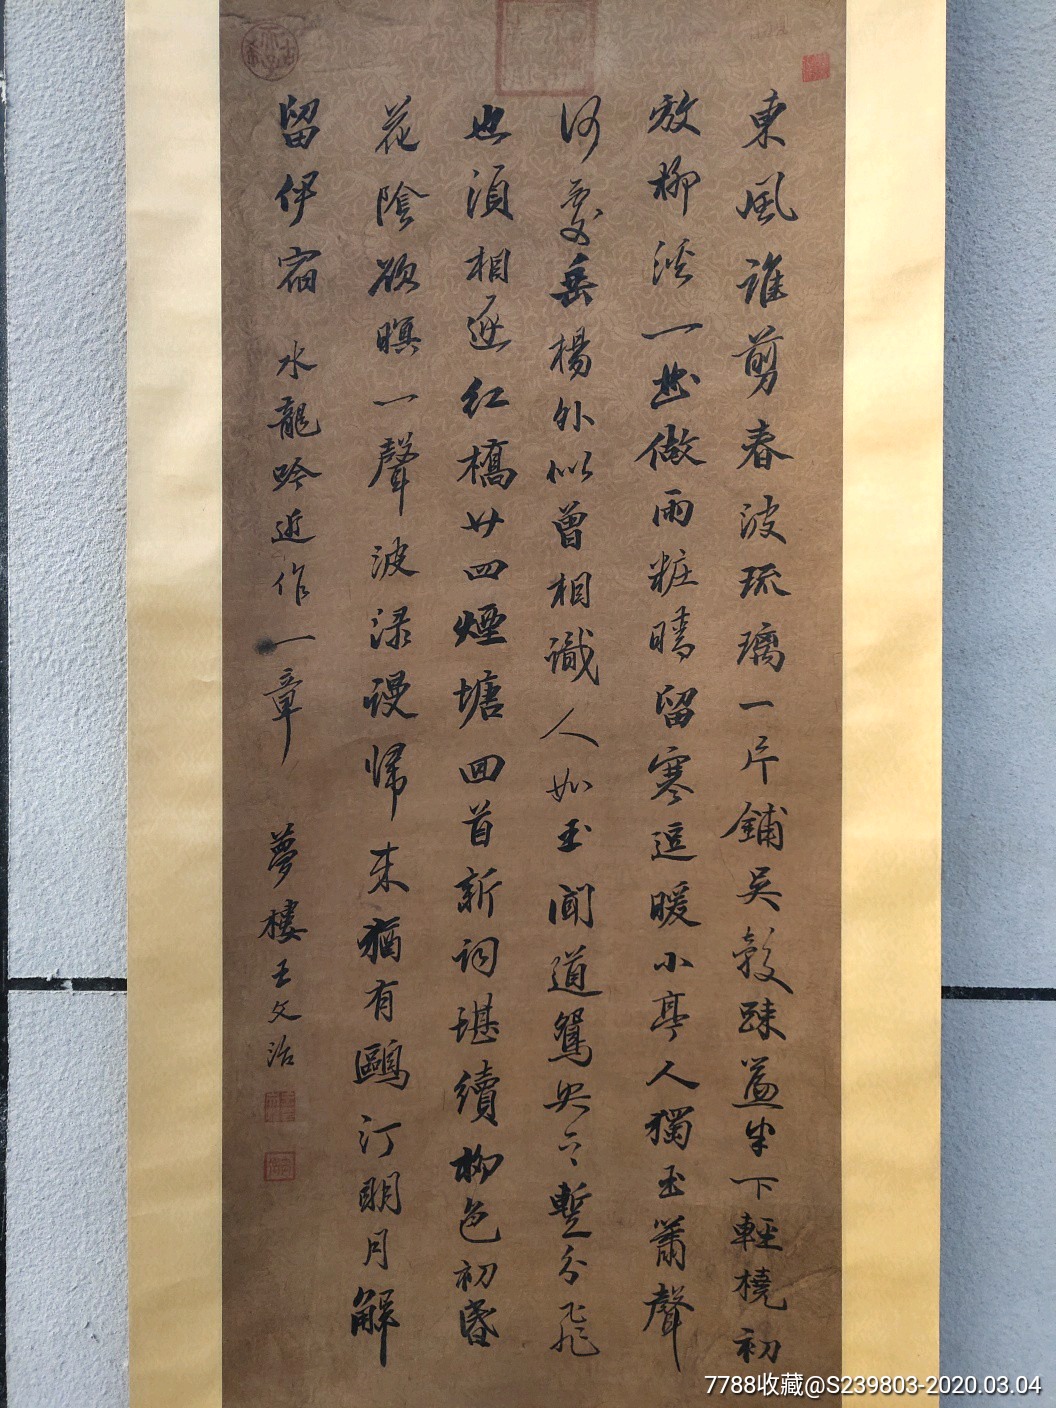 東風誰剪春波琉璃一片鋪吳縠踈簾半下輕橈初
放柳淡一做雨粧晴留寒逗暖小亭人獨玉簫聲
何處垂楊外似曾相識人如玉聞道鴛央亡暫分飛
也須相逐紅橋廿四煙塘回首新詞堪續柳色初昏
花陰欲暝一聲波渌謾歸来猶有鷗汀明月解
留伊宿 水龍吟近作一章 夢樓王文治
7788收藏@S239803-2020.03.04